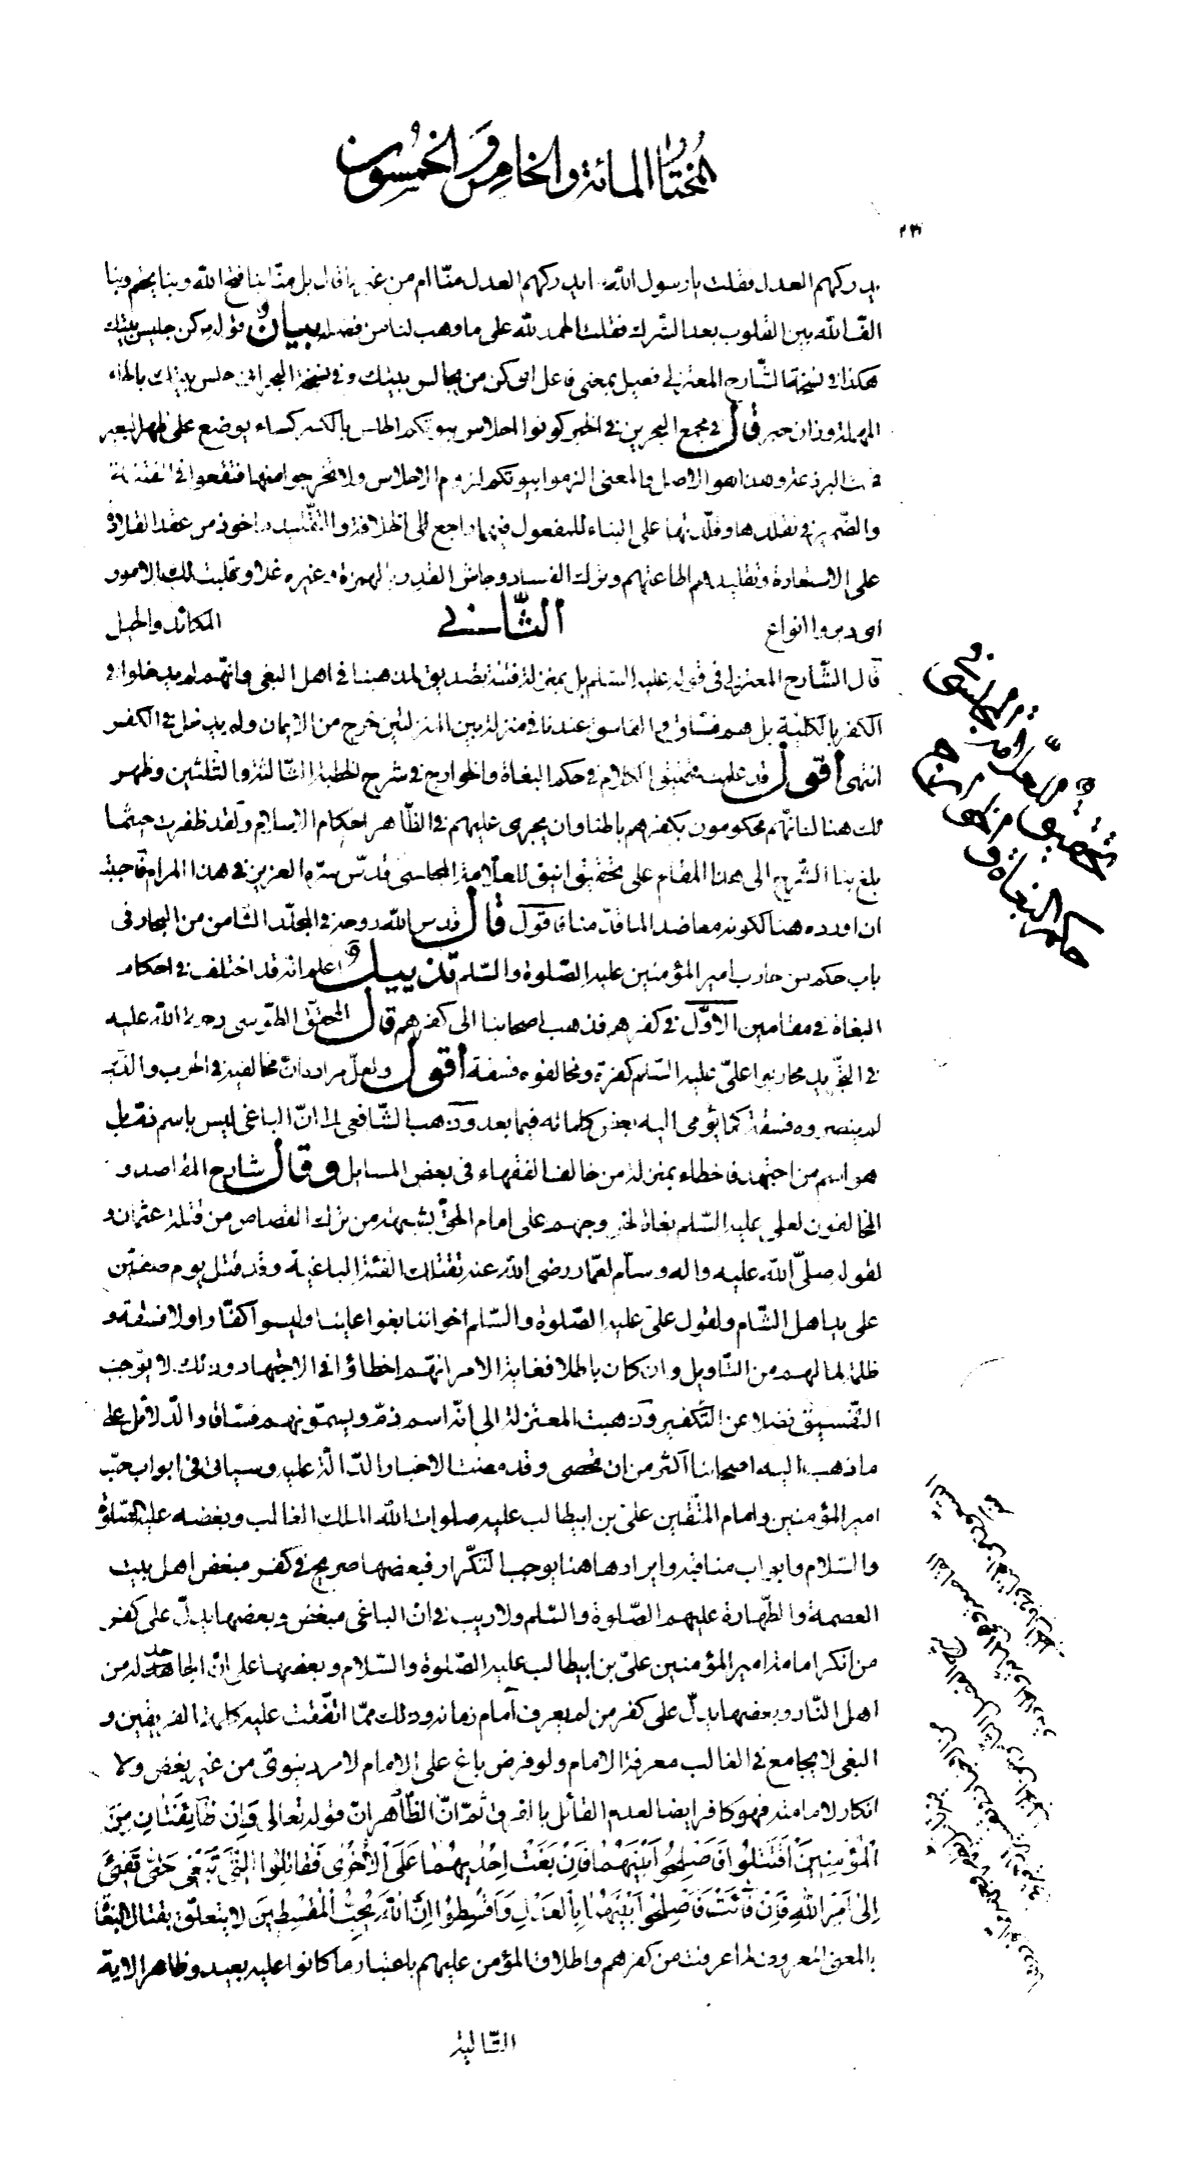 المختار المائة والخامس والخمسون
٢٣١
يدركهم العدل فقلت يا رسول الله ايدركهم العدل منّا ام من غيرنا قال بل منّا بنا فتح الله وبنا يختم وبنا
الّف الله بين القلوب بعد الشرك فقلت الحمد لله على ما وهب لنا من فضله بيان قوله كن جليس بيتك
هكذا في نسخة الشّارح المعتزلي فعيل بمعنى فاعل اى كن من يجالس بيتك وفي نسخة البحراني حلس بيتك بالحاء
المهملة وزان حبر قال في مجمع البحرين في الخبر كونوا احلاس بيوتكم الحلس بالكسر كساء يوضع على ظهر البعير
تحت البرذعة وهذا هو الاصل والمعنى الزموا بيوتكم لزوم الاحلاس ولا تخرجوا منها فتقعوا في الفتنة
والضّمير في تقلدها وقلّدتها على البناء للمفعول فيهما راجع الى الخلافة والتقليد ماخوذ من عقد القلادة
على الاستعارة وتقليدهم اطاعتهم وترك الفساد وجاش القدر بالهمزة وغيره غلا وقلبت لك الامور
اى دبروا انواع المكائد والحيل
الثّاني
قال الشّارح المعتزلي في قوله عليه السّلم بل بمنزلة فتنة تصديق لمذهبنا في اهل البغي وانّهم لم يدخلوا في
الكفر بالكليّة بل هم فسّاق والفاسق عندنا في منزلة بين المنزلتين خرج من الايمان ولم يدخل في الكفر
انتهى أقول قد علمت تحقيق الكلام في حكم البغاة والخوارج في شرح الخطبة الثّالثة والثلثين وظهر
لك هنالك انّهم محكومون بكفرهم باطنا وان يجرى عليهم في الظّاهر احكام الاسلام ولقد ظفرت حيثما
بلغ بنا الشّرح الى هذا المقام على تحقيق انيق للعلّامة المجلسى قدّس سرّه العزيز في هذا المرام فاحببت
ان اورده هنا لكونه معاضدا لما قدّمنا فاقول قال قدس الله روحه في المجلّد الثامن من البحار في
باب حكم من حارب امير المؤمنين عليه الصّلوة والسّلم تذييل اعلم انه قد اختلف في احكام
البغاة في مقامين الاوّل في كفرهم فذهب اصحابنا الى كفرهم قال المحقّق الطّوسى رحمة الله عليه
في التجريد محاربوا علىّ عليه السّلم كفرة ومخالفوه فسقة أقول ولعلّ مراده انّ مخالفيه في الحرب والّذين
لم ينصروه فسقة كما يؤمى اليه بعض كلماته فيما بعد وذهب الشّافعى الى انّ الباغى ليس باسم ذمّ بل
هو اسم من اجتهد فاخطاء بمنزلة من خالف الفقهاء في بعض المسايل وقال شارح المقاصد و
المخالفون لعلى عليه السّلم بغاة لخروجهم على امام الحقّ بشبهة من ترك القصاص من قتلة عثمان و
لقوله صلّى الله عليه واله وسلّم لعمّار رضى الله عنه تقتلك الفئة الباغية وقد قتل يوم صفّين
على يد اهل الشّام ولقول علىّ عليه الصّلوة والسّلم اخواننا بغوا علينا وليسوا كفّارا ولا فسقة و
ظلمة لما لهم من التّاويل وان كان باطلا فغاية الامر انّهم اخطاؤا في الاجتهاد وذلك لا يوجب
التّفسيق فضلا عن التّكفير وذهبت المعتزلة الى انّه اسم ذمّ ويسمّونهم فسّاقا والدّلائل على
ما ذهب اليه اصحابنا اكثر من ان تحصى وقد مضت الاخبار الدّالّة عليه وسياتى في ابواب حبّ
امير المؤمنين وامام المتّقين علىّ بن ابيطالب عليه صلوات الله الملك الغالب وبغضه عليه الصّلوة
والسّلام وابواب مناقبه وايرادها هنا يوجب التّكرار فبعضها صريح في كفر مبغض اهل بيت
العصمة والطّهارة عليهم الصّلوة والسّلم ولا ريب في انّ الباغى مبغض وبعضها يدلّ على كفر
من انكر امامة امير المؤمنين علىّ بن ابيطالب عليه الصّلوة والسّلام وبعضها على انّ الجاحد له من
اهل النّار وبعضها يدلّ على كفر من لم يعرف امام زمانه وذلك ممّا اتّفقت عليه كلمة الفريقين و
البغى لا يجامع في الغالب معرفة الامام ولو فرض باغ على الامام لامر دنيوىّ من غير بغض ولا
انكار لامامته فهو كافر ايضا لعدم القائل بالفرق ثمّ انّ الظّاهر انّ قوله تعالى وَاِن طآئِفَتانِ مِنَ
الْمُؤمِنِينَ اقْتَتَلُوا فَاَصْلِحُوا بَيْنَهُما فَاِنْ بَغَتْ اِحْديهُما عَلَى الْاُخْرى فَقاتِلُوا الَّتى تَبْغى حَتّى تَفِيئَ
اِلى اَمْرِ اللهِ فَاِنْ فائَتْ فَاَصْلِحُوا بَيْنَهُما بِالْعَدْلِ وَاَقْسِطُوا اِنَّ اللهَ يُحِبُّ الْمُقْسِطينَ لا يتعلّق بقتال البغاة
بالمعنى المعروف لما عرفت من كفرهم واطلاق المؤمن عليهم باعتبار ما كانوا عليه بعيد وظاهر الاية
التّالية
تحقيق للعلامة المجلسي في
حكم البغاة والخوارج